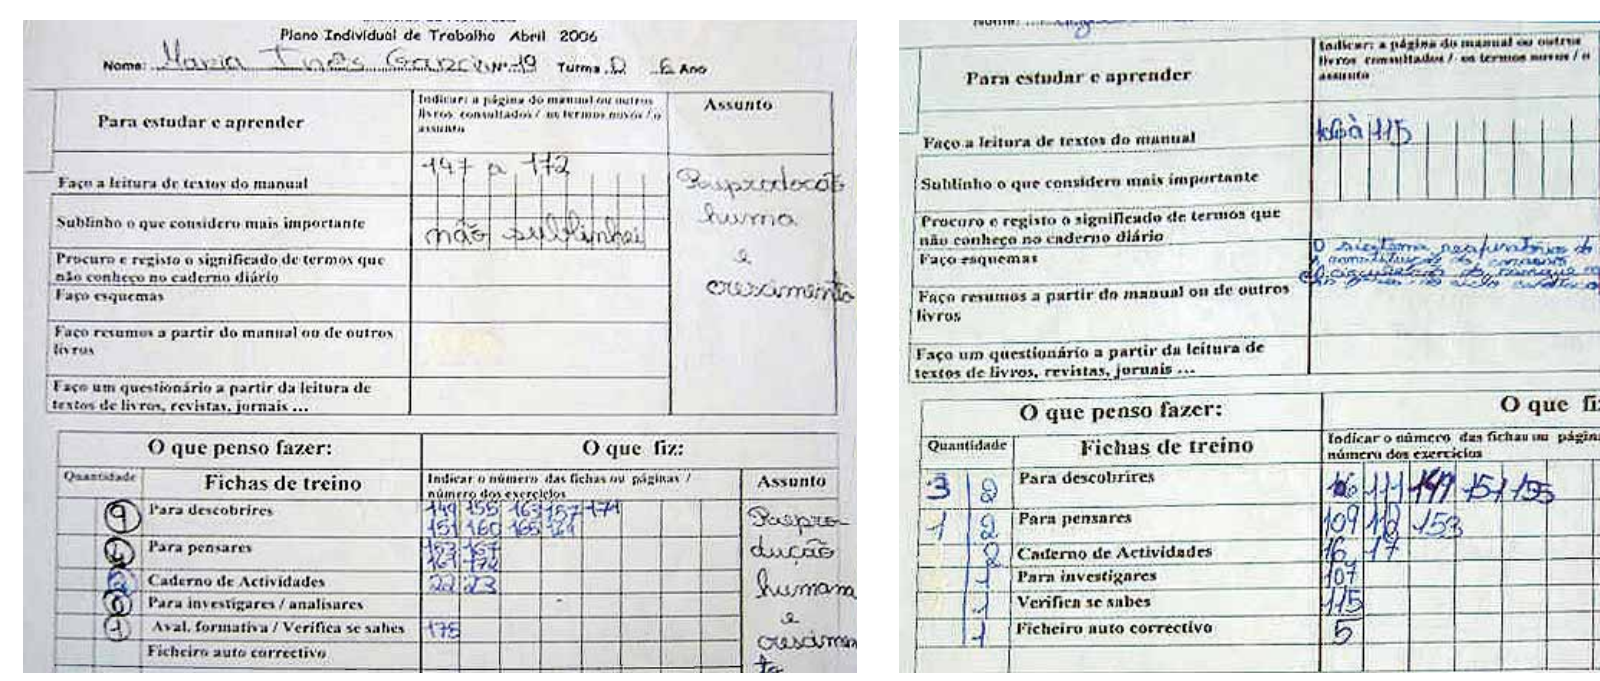 Plano Individual de Trabalho Abril 2006
Nome: Maria Inês Garcia Nº 19 Turma D 6 Ano
Para estudar e aprender
Indicar: a página do manual ou outros
livros consultados / os termos novos / o
assunto
Assunto
Faço a leitura de textos do manual
147 a 172
Sublinho o que considero mais importante
não sublinhei
Procuro e registo o significado de termos que
não conheço no caderno diário
Faço esquemas
Faço resumos a partir do manual ou de outros
livros
Faço um questionário a partir da leitura de
textos de livros, revistas, jornais ...
huma
e
O que penso fazer:
O que fiz:
Quantidade
Fichas de treino
Indicar o número das fichas ou páginas /
número dos exercícios
Assunto
9 Para descobrires 149 155 163 157 171
151 160 165
Para pensares
172
Caderno de Actividades 22 23
Para investigares / analisares
1 Aval. formativa / Verifica se sabes 175
Ficheiro auto correctivo
dução
humana
e
Nome:
Para estudar e aprender
Indicar: a página do manual ou outros
livros consultados / os termos novos / o
assunto
Faço a leitura de textos do manual
à 115
Sublinho o que considero mais importante
Procuro e registo o significado de termos que
não conheço no caderno diário
Faço esquemas
Faço resumos a partir do manual ou de outros
livros
Faço um questionário a partir da leitura de
textos de livros, revistas, jornais ...
O que penso fazer:
O que fi
Quantidade
Fichas de treino
Indicar o número das fichas ou págin
número dos exercícios
3 2 Para descobrires 111 149 151 155
1 2 Para pensares 109 112 153
2 Caderno de Actividades 16 17
1 Para investigares 107
1 Verifica se sabes 115
1 Ficheiro auto correctivo 5